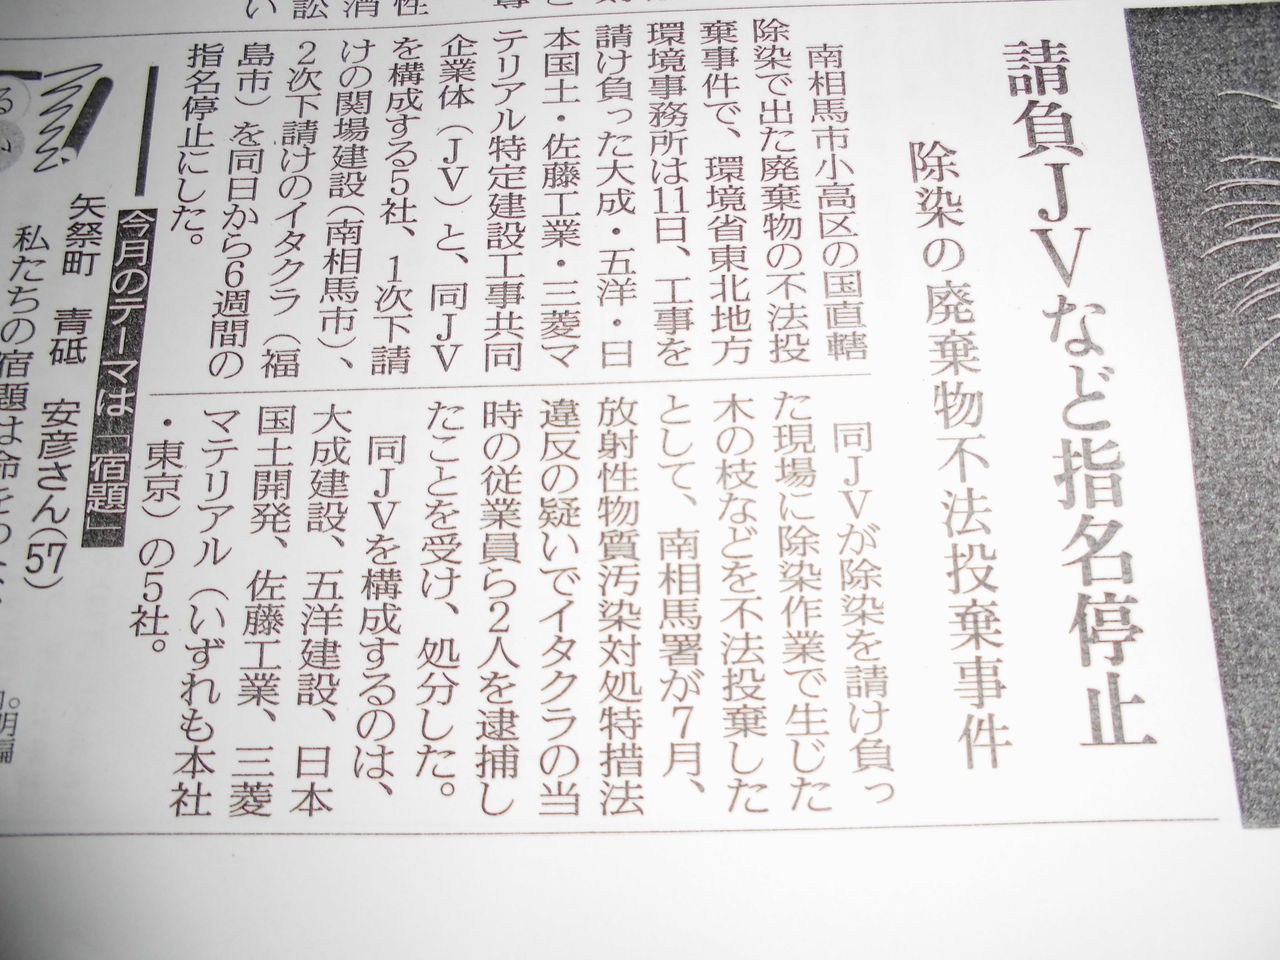 請負JVなど指名停止
除染の廃棄物不法投棄事件
南相馬市小高区の国直轄
除染で出た廃棄物の不法投
棄事件で、環境省東北地方
環境事務所は11日、工事を
請け負った大成・五洋・日
本国土・佐藤工業・三菱マ
テリアル特定建設工事共同
企業体(JV)と、同JV
を構成する5社、1次下請
けの関場建設(南相馬市)、
2次下請けのイタクラ(福
島市)を同日から6週間の
指名停止にした。
同JVが除染を請け負っ
た現場に除染作業で生じた
木の枝などを不法投棄した
として、南相馬署が7月、
放射性物質汚染対処特措法
違反の疑いでイタクラの当
時の従業員ら2人を逮捕し
たことを受け、処分した。
同JVを構成するのは、
大成建設、五洋建設、日本
国土開発、佐藤工業、三菱
マテリアル(いずれも本社
・東京)の5社。
今月のテーマは「宿題」
矢祭町 青砥 安彦さん(57)
私たちの宿題は命を